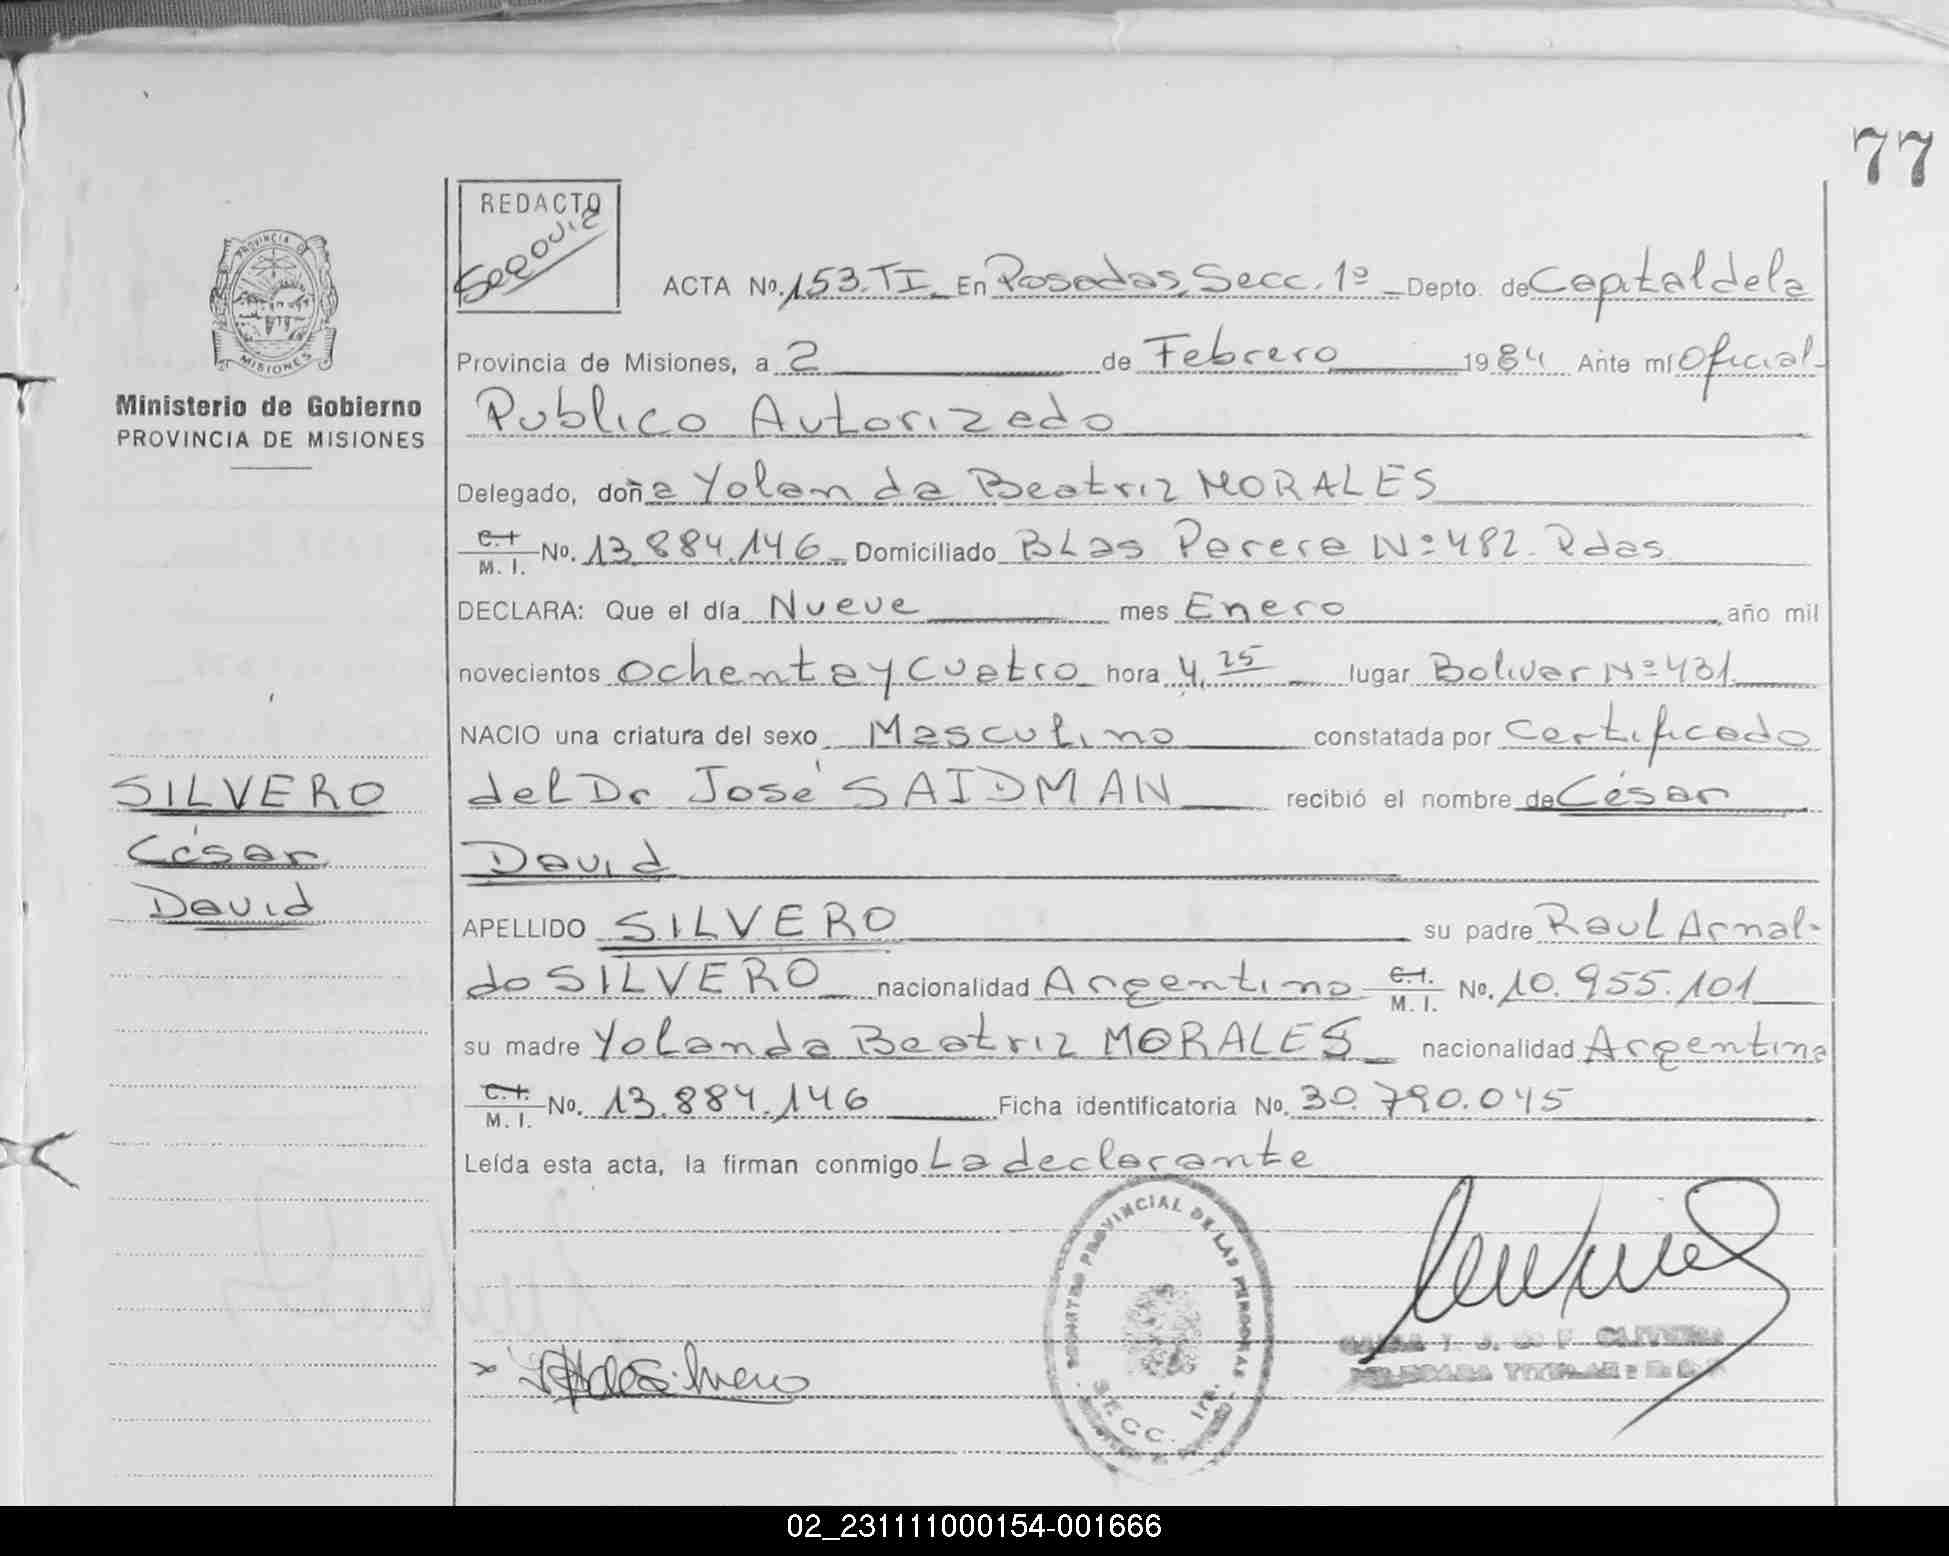 77
REDACTO
Segovia
PROVINCIA DE
MISIONES
Ministerio de Gobierno
PROVINCIA DE MISIONES
ACTA No. 153. TI. En Posadas, Secc. 1ª Depto. de Capital de la
Provincia de Misiones, a 2 de Febrero 1984 Ante mí Oficial
Publico Autorizado
Delegado, doña Yolanda Beatriz MORALES
C.I. M. I. No. 13.884.146 Domiciliado BLas Parera Nº 482. Pdas
DECLARA: Que el día Nueve mes Enero año mil
novecientos ochenta y cuatro hora 4,25 lugar Bolivar Nº 431
NACIO una criatura del sexo Masculino constatada por Certificado
del Dr José SAIDMAN recibió el nombre de César
David
APELLIDO SILVERO su padre Raul Arnal-
do SILVERO nacionalidad Argentino C.I. M. I. No. 10.955.101
su madre Yolanda Beatriz MORALES nacionalidad Argentina
C.I. M. I. No. 13.884.146 Ficha identificatoria No. 30.790.045
Leída esta acta, la firman conmigo La declarante
SILVERO
César
David
PROVINCIAL DE LAS PERSONAS
SECC. 1ra.
OLIVEIRA
02_231111000154-001666